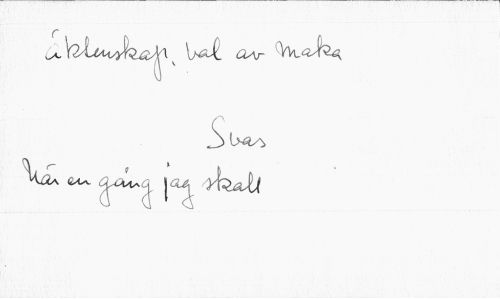 Äktenskap, val av maka
Svas
När en gång jag skall